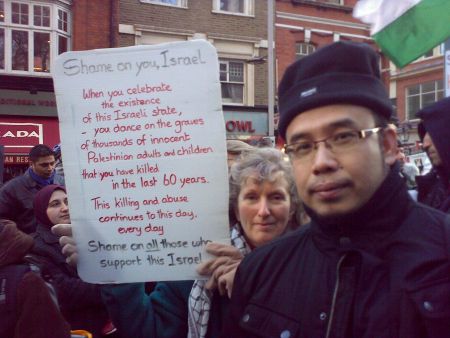 Shame on you, Israel
When you celebrate
the existence
of this Israeli state,
- you dance on the graves
of thousands of innocent
Palestinian adults and children
that you have killed
in the last 60 years.
This killing and abuse
continues to this day,
every day
Shame on all those who
support this Israel
ADA
OWL